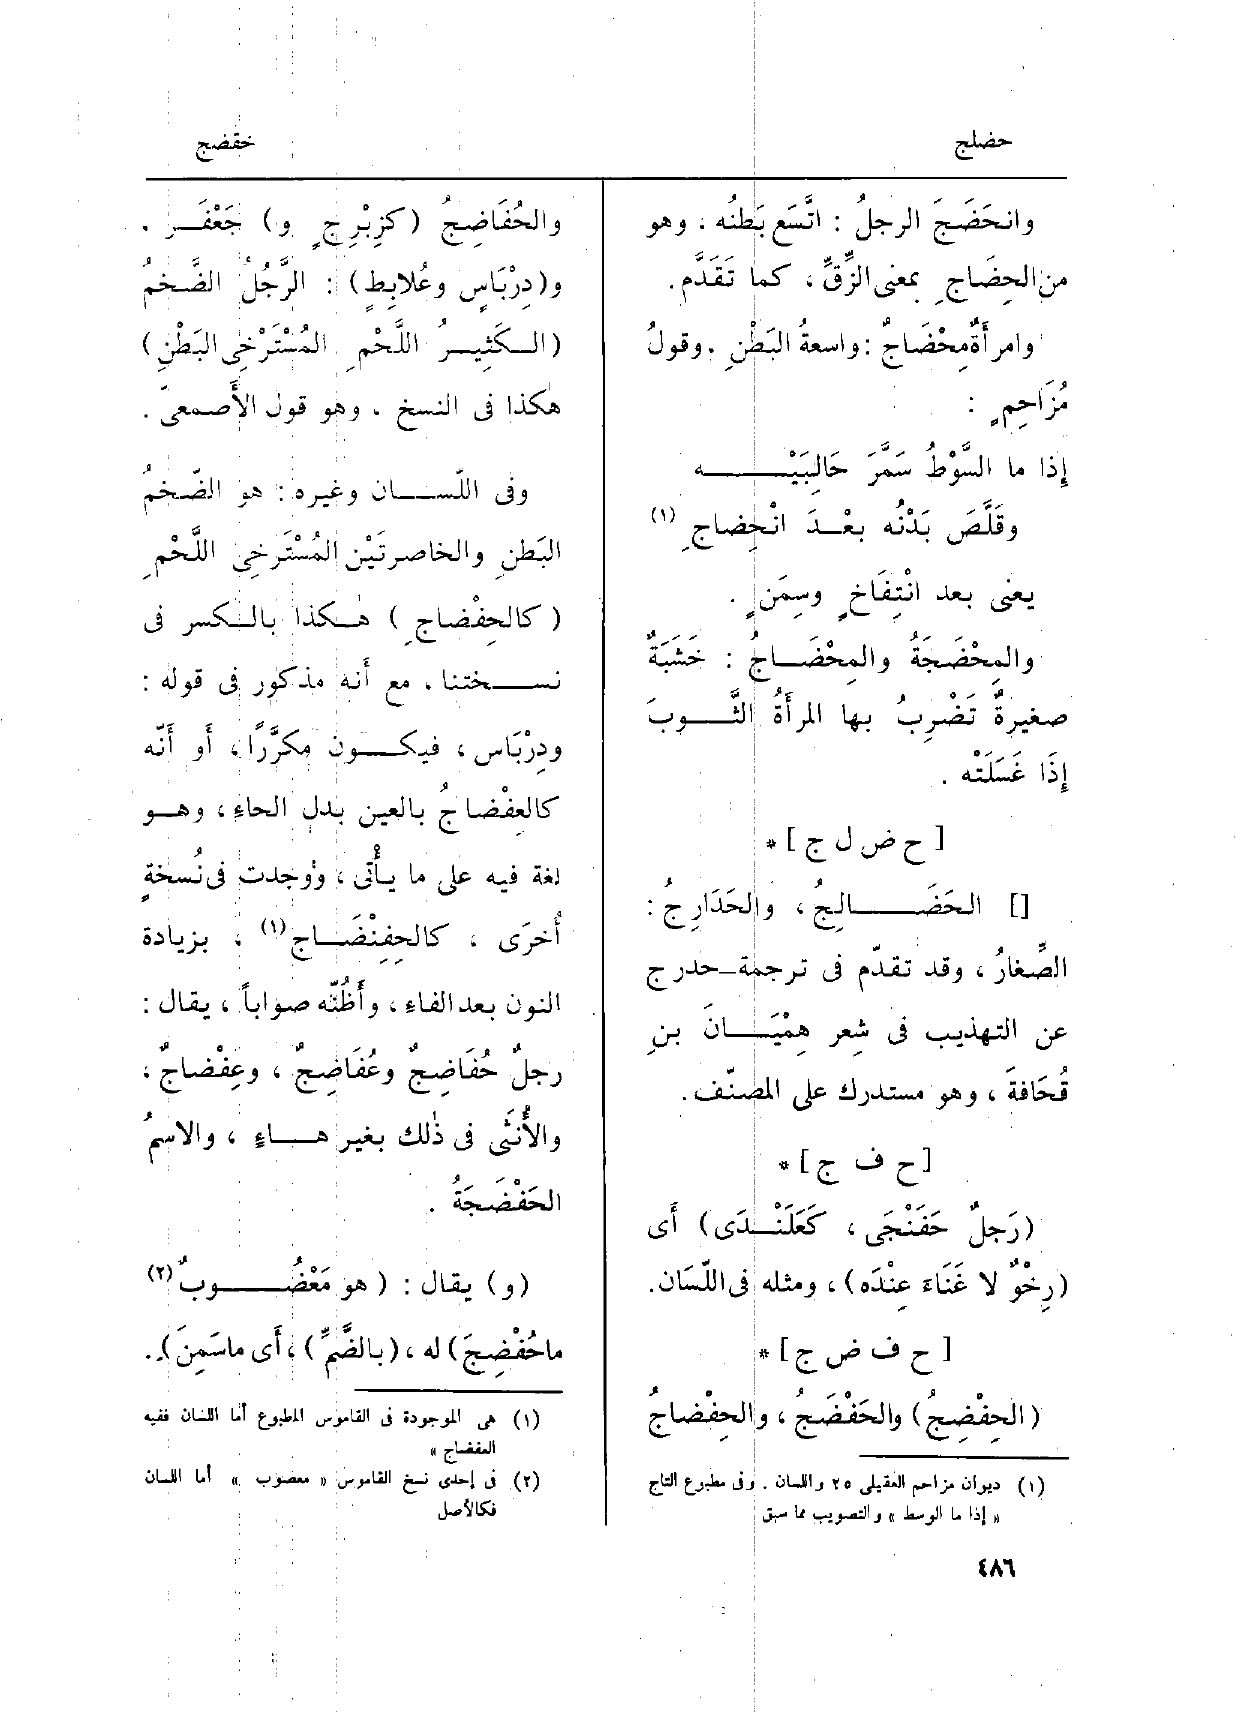 حضلج
خقضج
وانحَضَجَ الرجلُ : اتَّسَع بَطنُه ، وهو
من الحِضَاجِ بمعنى الزِّقِّ ، كما تَقَدَّم .
وامرأَةٌ مِحْضَاجٌ : واسعةُ البَطْنِ . وقولُ
مُزَاحِمٍ :
إِذا ما السَّوْطُ سَمَّرَ حَالِبَيْـــــه
وقَلَّصَ بَدْنُه بعْــدَ انْحِضاجِ (١)
يعنى بعد انْتِفَاخٍ وسِمَنٍ .
والمِحْضَجَةُ والمِحْضَــاجُ : خَشَبَةٌ
صغيرةٌ تَضْرِبُ بها المرأَةُ الثَّـــوبَ
إِذَا غَسَلَتْه .
[ ح ض ل ج ] *
[] الحَضَـــــالِجُ ، والحَدَارِجُ :
الصِّغارُ ، وقد تقدّم فى ترجمة حدرج
عن التهذيب فى شعر هِمْيَـــانَ بنِ
قُحَافةَ ، وهو مستدرك على المصنّف .
[ ح ف ج ] *
(رَجلٌ حَفَنْجَى ، كَعَلَنْــدَى) أَى
(رِخْوٌ لا غَنَاءَ عِنْدَه) ، ومثله فى اللِّسَان .
[ ح ف ض ج ] *
(الحِفْضِجُ) والحَفْضَجُ ، والحِفْضاجُ
(١) ديوان مزاحم العقيلى ٢٥ واللسان . وفى مطبوع التاج
« إذا ما الوسط » والتصويب مما سبق
والحُفَاضِجُ (كزِبْرِجٍ و) جَعْفَــر .
و(دِرْبَاسٍ وعُلابِطٍ) : الرَّجُلُ الضَّخمُ
(الــكَثِيــرُ اللَّحْمِ المُسْتَرْخِى البَطْنِ)
هٰكذا فى النسخ ، وهو قول الأَصمعىّ .
وفى اللّســـان وغيره : هو الضّخمُ
البَطنِ والخاصرتَيْن المُسْتَرخِى اللَّحْمِ
( كالحِفْضاجِ ) هٰــكذا بالــكسر فى
نســـختنا ، مع أَنه مذكور فى قوله :
ودِرْبَاس ، فيكـــون مكرَّرًا ، أَو أَنّه
كالعِفْضاجُ بالعين بدل الحاءِ ، وهــو
لغة فيه على ما يـأْتى ، ووُجدت فى نُسخةٍ
أُخرَى ، كالحِفِنْضَــاج(١) ، بزيادة
النون بعد الفاء ، وأَظُنّه صواباً ، يقال :
رجلٌ حُفَاضِجٌ وعُفَاضِجٌ ، وعِفْضاجٌ ،
والأُنثَى فى ذٰلك بغير هـــاءٍ ، والاسمُ
الحَفْضَجَةُ .
(و) يقال : ( هو مَعْضُـــــوبٌ (٢)
ماحُفْضِجَ) له ، (بالضَّمِّ) ، أَى ماسَمِنَ) .
(١) هى الموجودة فى القاموس المطبوع أما اللسان ففيه
العفضاج »
(٢) فى إحدى نسخ القاموس « معصوب » أما اللسان
فكالأصل
٤٨٦